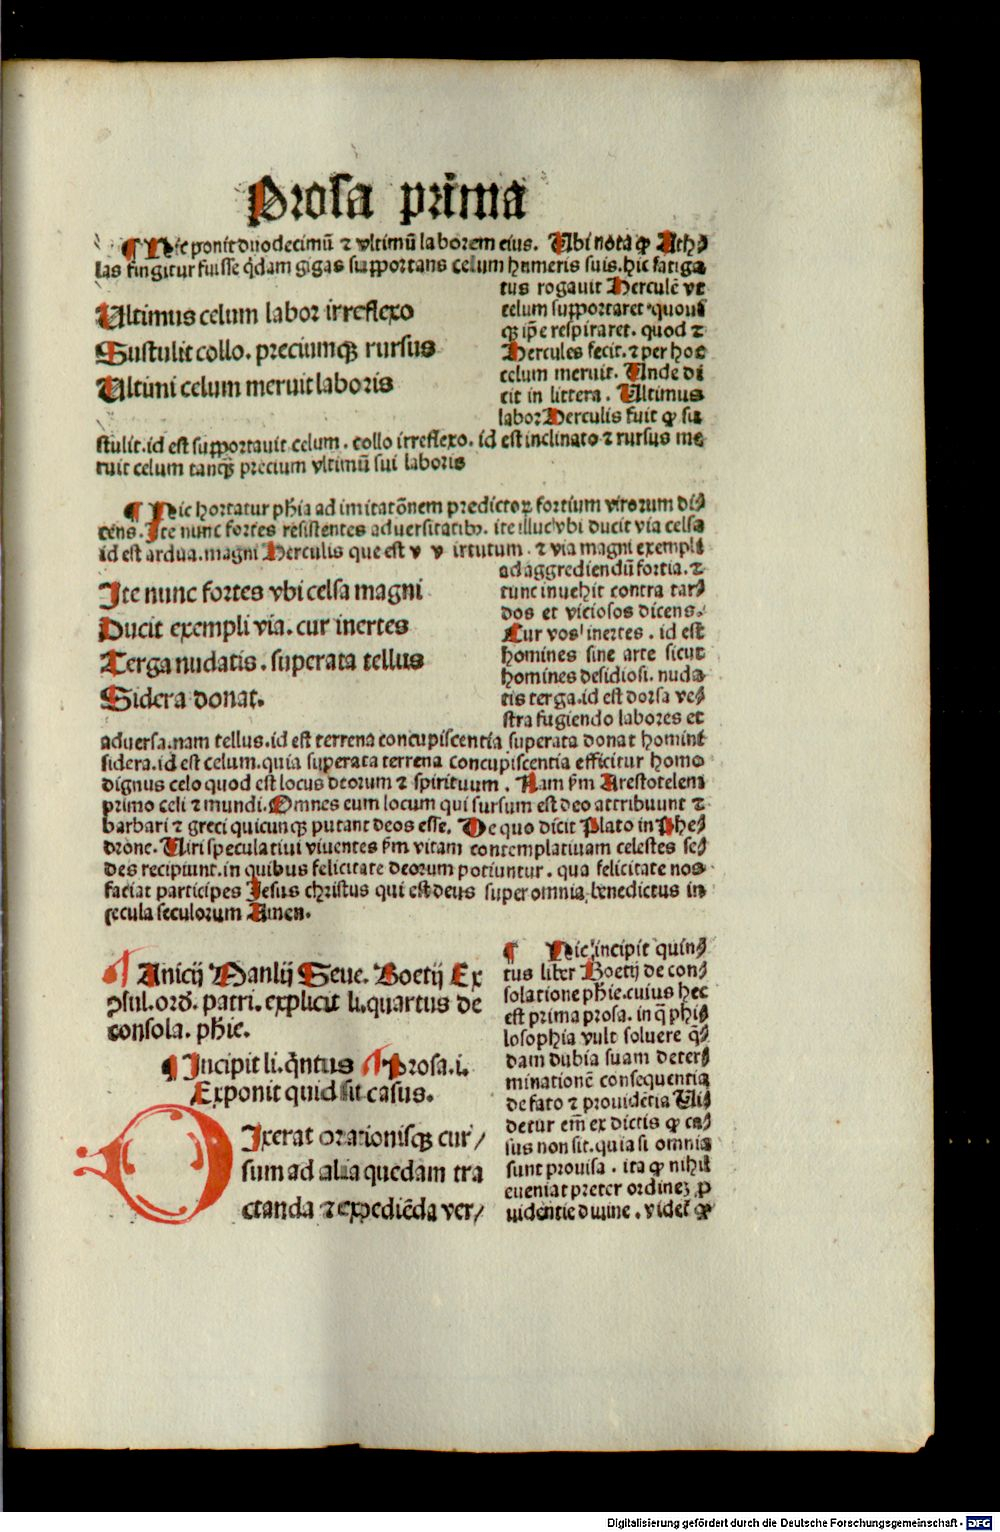 Prosa prīma
¶ Hic ponit duodecimū ⁊ vltimū laborem eius. Ubi nota ꝙ Ath⸗
las fingitur fuisse q̄dam gigas supportans celum humeris suis. hic fatiga
tus rogauit Herculē vt
celum supportaret quous
qꝫ ip̄e respiraret. quod ⁊
Hercules fecit. ⁊ per hoc
celum meruit. Unde di
cit in littera. Ultimus
labor Herculis fuit ꝙ su
Ultimus celum labor irreflexo
Sustulit collo. preciumqꝫ rursus
Ultimi celum meruit laboris
stulit. id est supportauit celum. collo irreflexo. id est inclinato ⁊ rursus me
ruit celum tanqꝫ precium vltimū sui laboris
¶ Hic hortatur phīa ad imitatōnem predictoꝝ fortium virorum di⸗
cens. Ite nunc fortes resistentes aduersitatibꝫ. ite illuc vbi ducit via celsa
id est ardua. magni Herculis que est v v irtutum. ⁊ via magni exempli
ad aggrediendū fortia. ⁊
tunc inuehit contra tar⸗
dos et viciosos dicens.
Cur vos inertes. id est
homines sine arte sicut
homines desidiosi. nuda
tis terga. id est dorsa ve⸗
stra fugiendo labores et
Ite nunc fortes vbi celsa magni
Ducit exempli via. cur inertes
Terga nudatis. superata tellus
Sidera donat.
aduersa. nam tellus. id est terrena concupiscentia superata donat homini
sidera. id est celum. quia superata terrena concupiscentia efficitur homo
dignus celo quod est locus deorum ⁊ spirituum. Nam fm̄ Arestotelem
primo celi ⁊ mundi. Omnes eum locum qui sursum est deo attribuunt ⁊
barbari ⁊ greci quicunqꝫ putant deos esse. De quo dicit Plato in Phe⸗
drone. Uiri speculatiui viuentes fm̄ vitam contemplatiuam celestes se⸗
des recipiunt. in quibus felicitate deorum potiuntur. qua felicitate nos
faciat participes Jesus christus qui est deus super omnia benedictus in
secula seculorum Amen.
¶ Anicij Manlij Seue. Boetij Ex
ꝯsul. ord̄. patri. explicit li. quartus de
consola. phīe.
¶ Incipit li. q̄ntus ¶ Prosa .i.
Exponit quid sit casus.
DIxerat orationisqꝫ cur⸗
sum ad alia quedam tra
ctanda ⁊ expediēda ver⸗
¶ Hic incipit quin⸗
tus liber Boetij de con⸗
solatione phīe. cuius hec
est prima prosa. in q̄ phi⸗
losophia vult soluere q̄⸗
dam dubia suam deter⸗
minationē consequentia
de fato ⁊ prouidētia Ui⸗
detur em̄ ex dictis ꝙ ca⸗
sus non sit. quia si omnia
sunt prouisa. ita ꝙ nihil
eueniat preter ordineꝫ ꝓ
uidentie diuine. videt̄ ꝙ
Digitalisierung gefördert durch die Deutsche Forschungsgemeinschaft - DFG